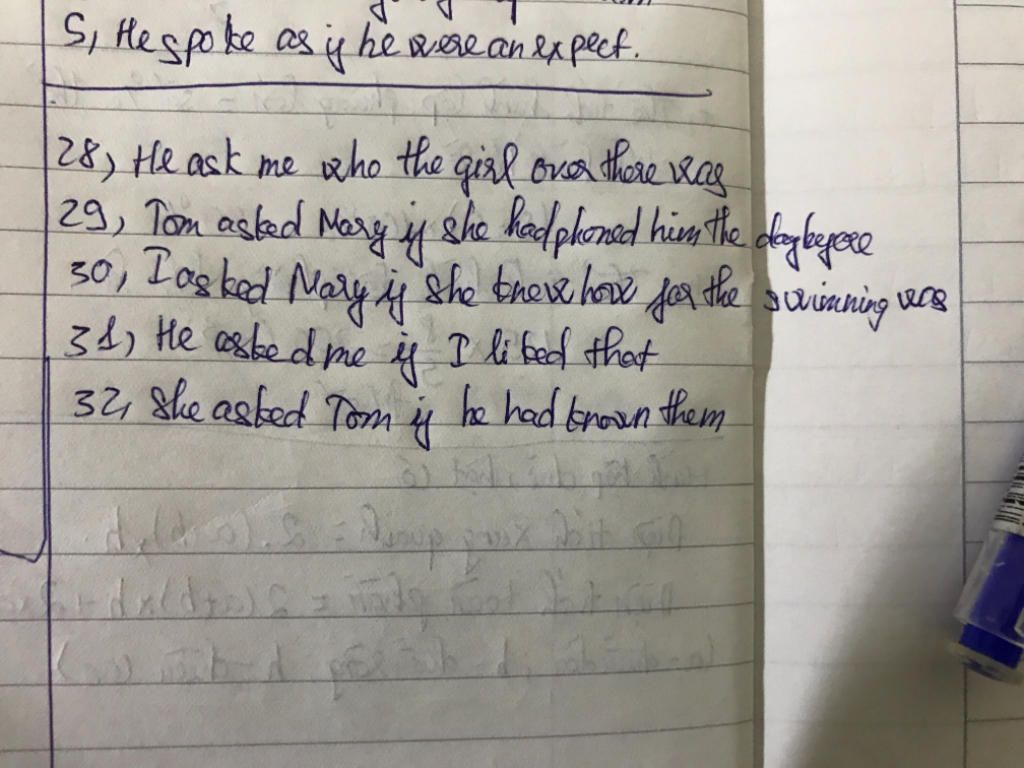 5, He spoke as if he were an expect.
28, He ask me who the girl over there was
29, Tom asked Mary if she had phoned him the day before
30, I asked Mary if she knew how far the swimming was
31, He asked me if I liked that
32, She asked Tom if he had known them